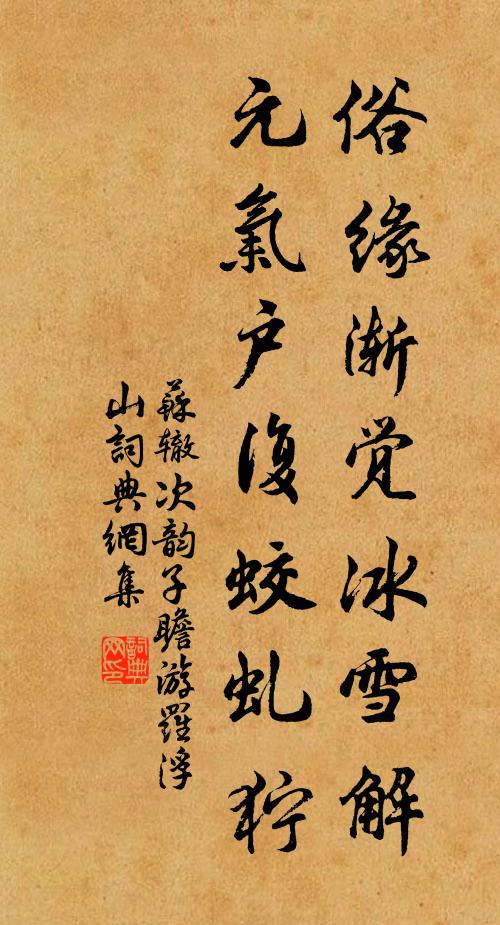 俗缘渐觉冰雪解
元氣户復蛟虬狞
蘇辙次韵子瞻游羅浮
山詞典網集
詞典
网印